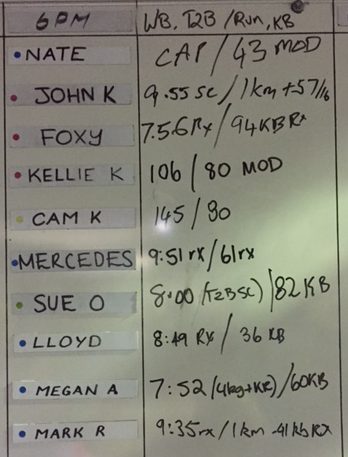 6PM WB, T2B /Run, KB
NATE CAP / 43 MOD
JOHN K 9.55 SC / 1km + 57/16
FOXY 7.56 Rx / 94KB Rx
KELLIE K 106 / 80 MOD
CAM K 145 / 90
MERCEDES 9:51 rx / 61rx
SUE O 8:00 (T2B SC) / 82 KB
LLOYD 8:49 RX / 36 KB
MEGAN A 7:52 (4kg+KR) / 60KB
MARK R 9:35rx / 1km 41kb RX